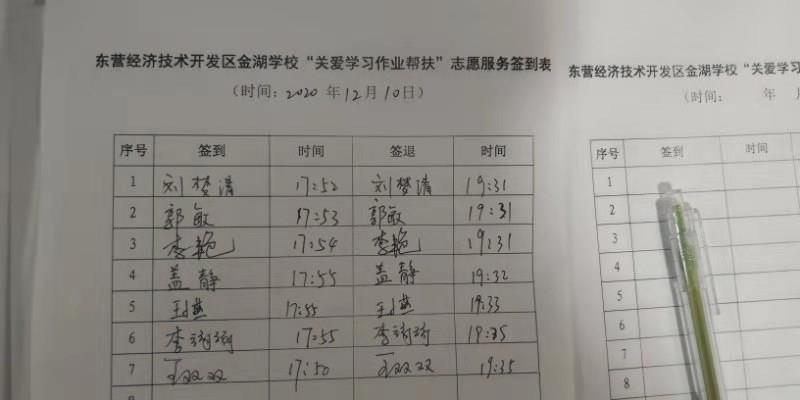 东营经济技术开发区金湖学校“关爱学习作业帮扶”志愿服务签到表
（时间：2020 年 12月 10日）
序号 签到 时间 签退 时间
1 刘梦清 17:52 刘梦清 19:31
2 郭敏 17:53 郭敏 19:31
3 李艳 17:54 李艳 19:31
4 盖静 17:55 盖静 19:32
5 17:55 19:33
6 李 17:55 李 19:35
7 王双双 17:50 王双双 19:35
东营经济技术开发区金湖学校“关爱学习
（时间： 年 月
序号 签到 时间
1
2
3
4
5
6
7
8